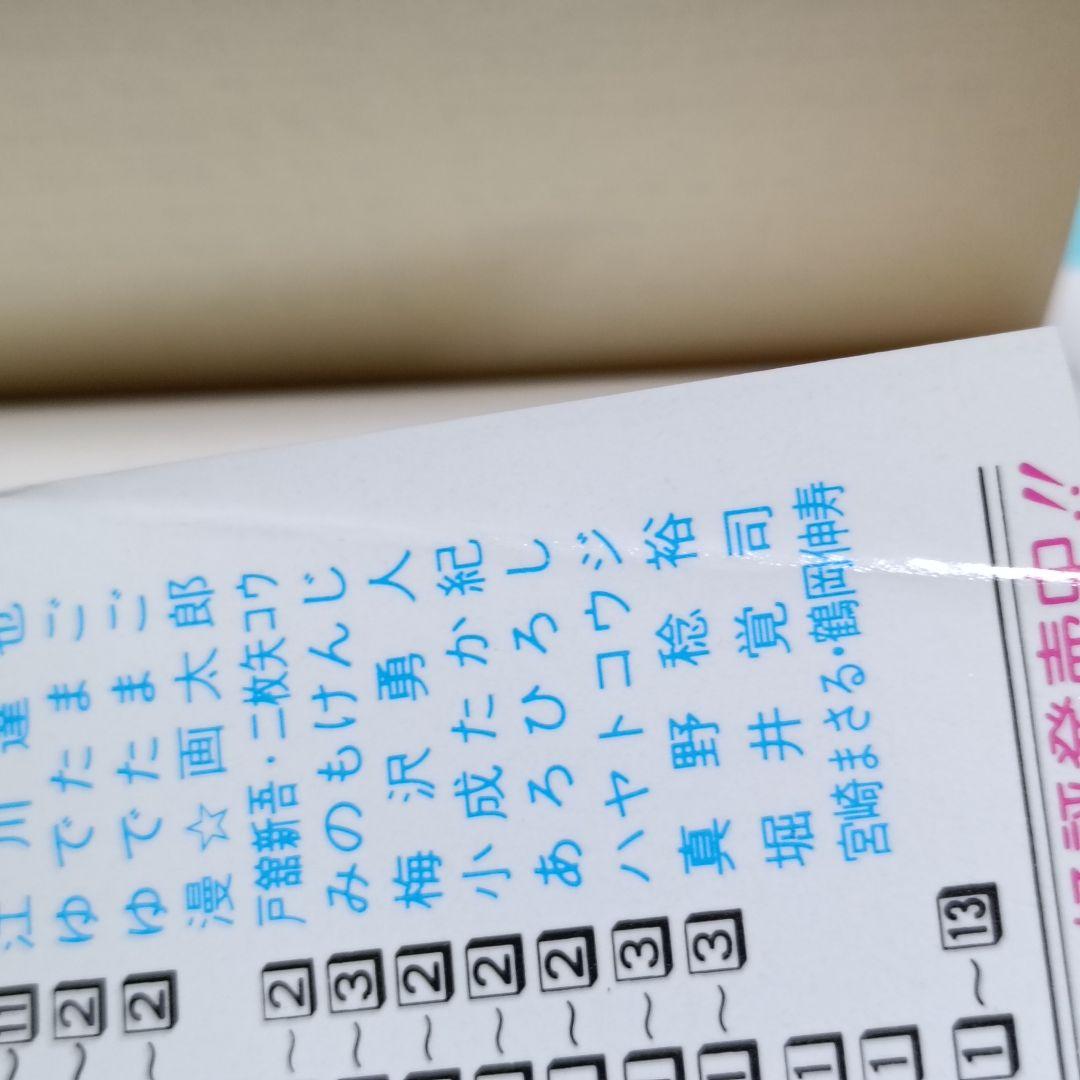 ~11 江川達也
~2 ゆでたまご
~2 ゆでたまご
漫☆画太郎
~2 戸舘新吾・二枚矢コウ
~3 みのもけんじ
~2 梅沢勇人
1~2 小成たか紀
1~2 あろひろし
1~3 ハヤトコウジ
1~3 真野稔裕
1 堀井覚司
1 宮崎まさる・鶴岡伸寿
1~13
評発売中!!